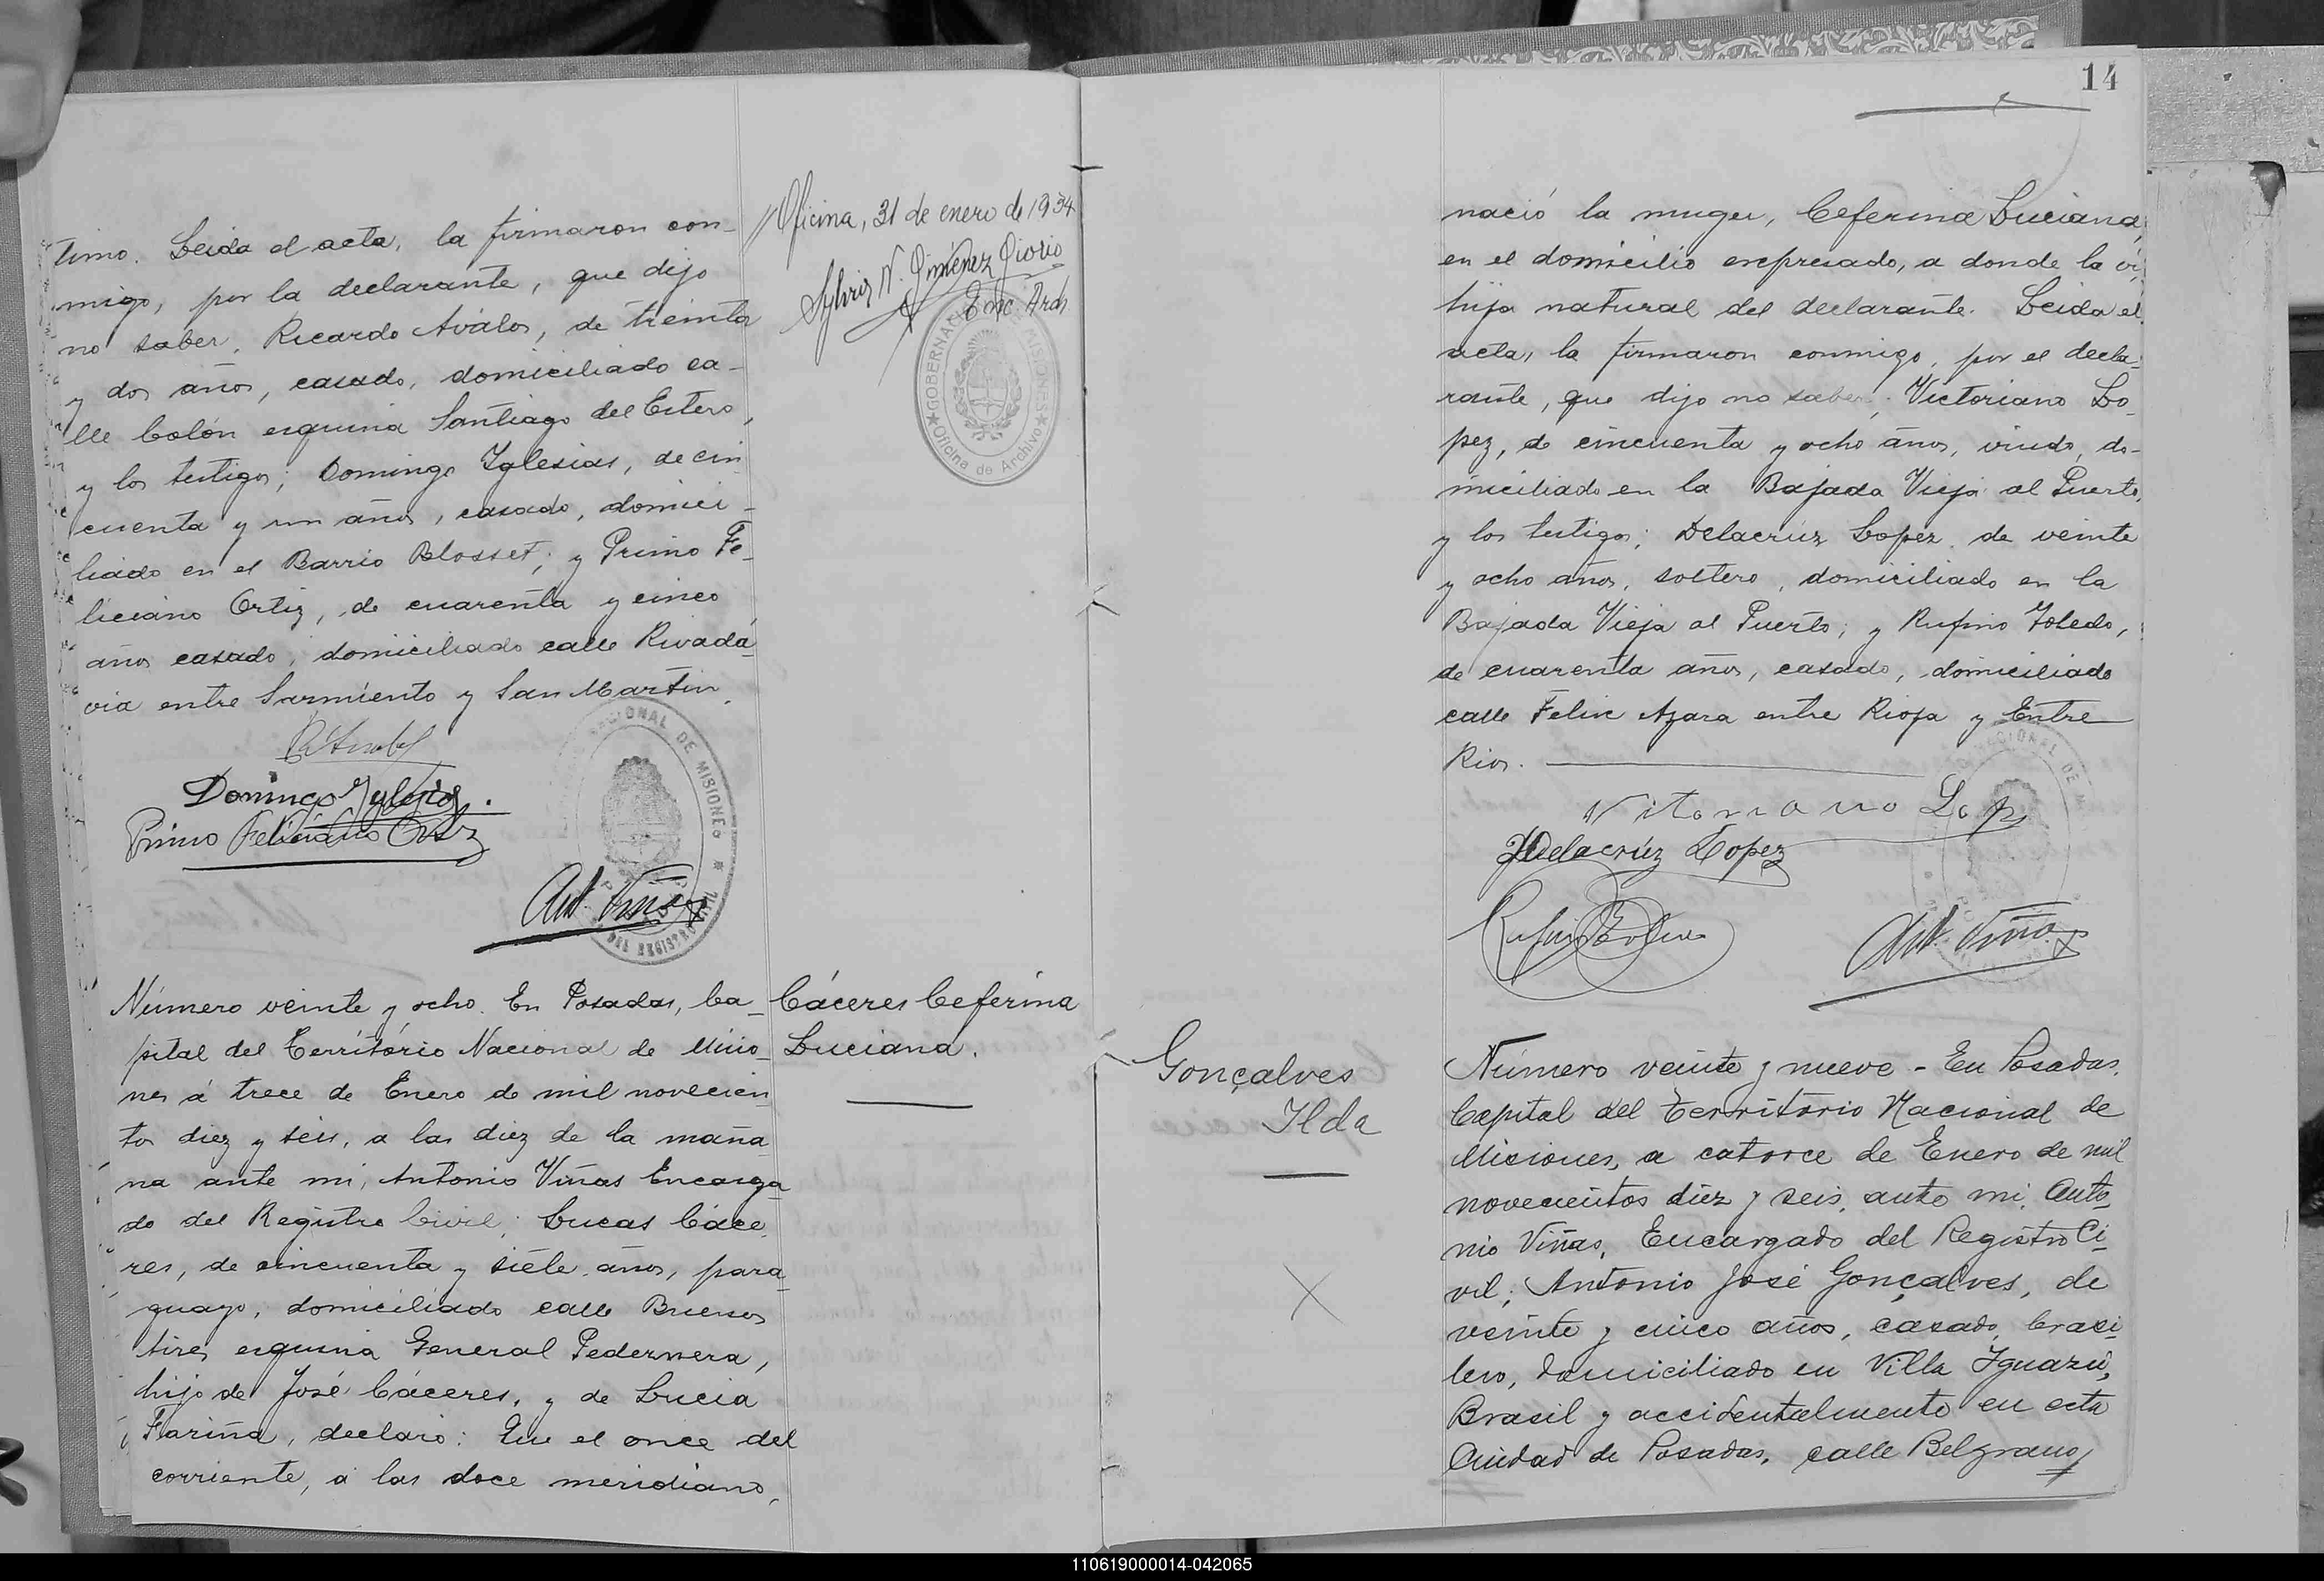 timo. Leida el acta, la firmaron con-
migo, por la declarante, que dijo
no saber, Ricardo Aválos, de treinta
y dos años, casado, domiciliado ca-
lle Colón esquina Santiago del Estero,
y los testigos; Domingo Yglesias, de cin
cuenta y un años, casado, domici-
liado en el Barrio Blosset; y Primo Fe-
liciano Ortiz, de cuarenta y cinco
años casado, domiciliado calle Rivada-
via entre Sarmiento y San Martin.
Domingo Yglesias.
Primo Feliciano Ortiz
Ant. Viñas
NACIONAL DE MISIONES
DEL REGISTRO
Oficina, 31 de enero de 1934
N. Giménez
Enc. Arch.
GOBERNACION DE MISIONES
Oficina de Archivo
Número veinte y ocho. En Posadas, Ca-
pital del Território Nacional de Misio-
nes á trece de Enero de mil novecien
tos diez y seis, a las diez de la maña
na ante mi, Antonio Viñas Encarga
do del Registro Civil; Lucas Cáce
res, de cincuenta y siete años, para
guayo, domiciliado calle Buenos
Aires esquina General Pedernera,
hijo de José Cáceres, y de Lucia
Fariña, declaró: Que el once del
corriente, á las doce meridiano,
Cáceres Ceferina
Luciana.
14
nació la muger, Ceferina Luciana,
en el domicilio expresado, a donde la vi,
hija natural del declarante. Leida el
acta, la firmaron conmigo, por el decla-
rante, que dijo no saber; Victoriano Lo-
pez, de cincuenta y ocho años, viudo, do-
miciliado en la Bajada Vieja al Puerto,
y los testigos; Delacruz Lopez, de veinte
y ocho años, soltero, domiciliado en la
Bajada Vieja al Puerto; y Rufino Toledo,
de cuarenta años, casado, domiciliado
calle Felix Azara entre Rioja y Entre
Rios.
Vitoriano Lop
Delacrúz Lopez
Ant. Viñas
Gonçalves
Ilda
Número veinte y nueve - En Posadas,
Capital del Território Nacional de
Misiones, a catorce de Enero de mil
novecientos diez y seis, ante mi, Anto-
nio Viñas, Encargado del Registro Ci-
vil; Antonio José Gonçalves, de
veinte y cinco años, casado, brasi-
lero, domiciliado en Villa Iguazú,
Brasil y accidentalmente en esta
Ciudad de Posadas, calle Belgrano,
110619000014-042065